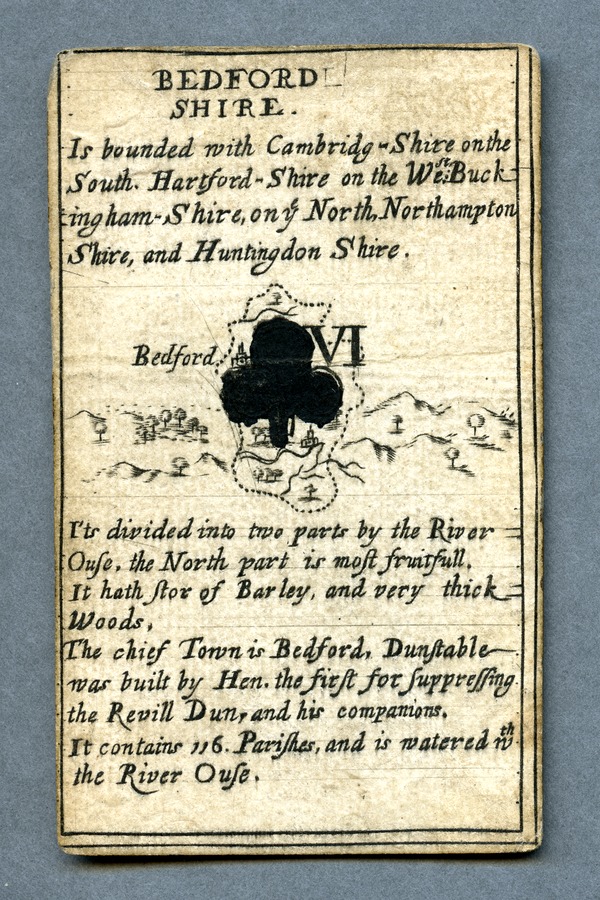 BEDFORD
SHIRE.
Is bounded with Cambridg-Shire on the
South. Hartford-Shire on the West Buck=
ingham-Shire, on yͤ North, Northampton
Shire, and Huntingdon Shire.
VI
Bedford
I'ts divided into two parts by the River
Ouſe, the North part is moſt fruitfull.
It hath ſtor of Barley, and very thick
Woods,
The chief Town is Bedford, Dunſtable
was built by Hen. the firſt for ſuppreſſing
the Revill Dun, and his companions.
It contains 116. Pariſhes, and is watered wᵗʰ
the River Ouſe.